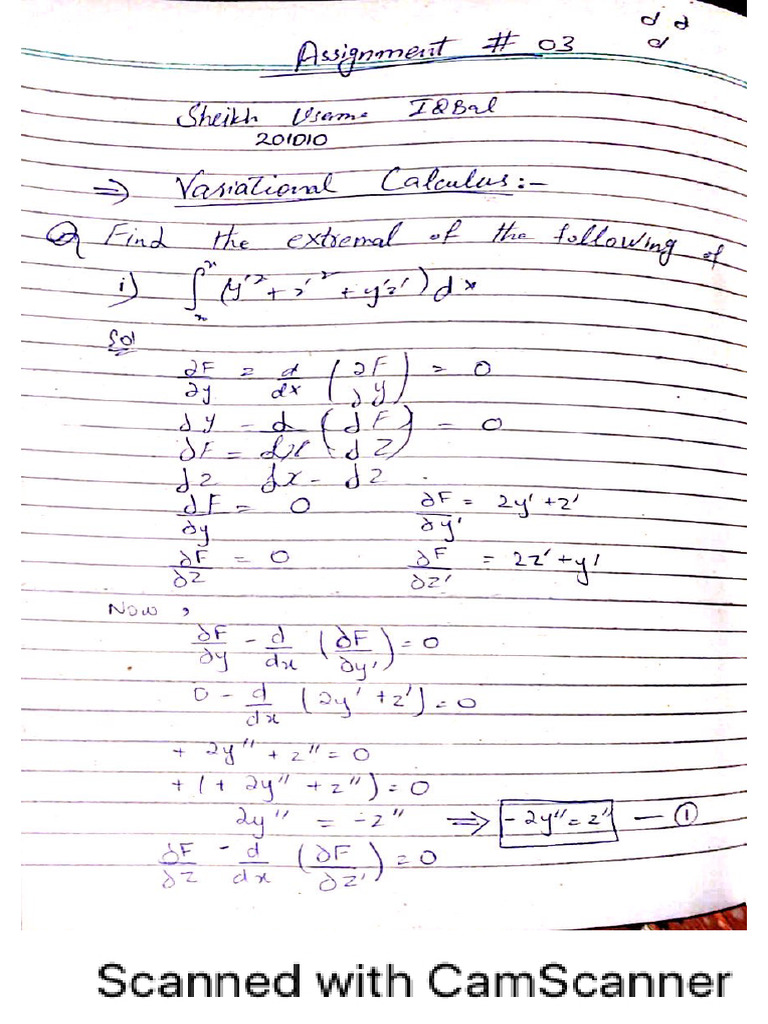 Assignment # 03
Sheikh Usama IQBal
201010
⇒ Variational Calculus:-
Q Find the extremal of the following of
i) ∫ (y'² + z'² + y'z') dx
Sol
∂F/∂y = d/dx (∂F/∂y) = 0
∂y - d (∂F) = 0
∂F = dx ∂z
∂z dx - ∂z
∂F/∂y = 0 ∂F/∂y' = 2y' + z'
∂F/∂z = 0 ∂F/∂z' = 2z' + y'
Now,
∂F/∂y - d/dx (∂F/∂y') = 0
0 - d/dx (2y' + z') = 0
+ 2y'' + z'' = 0
+ (+ 2y'' + z'') = 0
2y'' = -z'' ⇒ -2y'' = z'' — ①
∂F/∂z - d/dx (∂F/∂z') = 0
Scanned with CamScanner